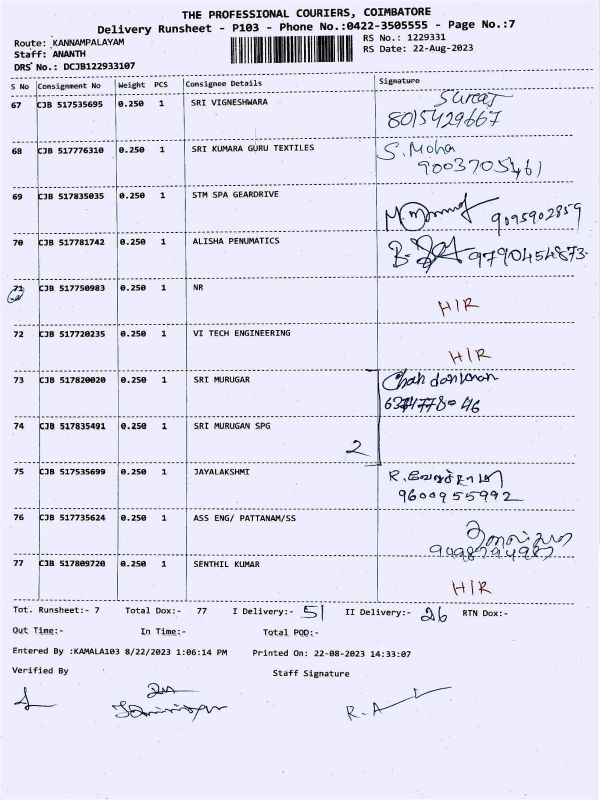 THE PROFESSIONAL COURIERS, COIMBATORE
Delivery Runsheet - P103 - Phone No.:0422-3505555 - Page No.:7
Route: KANNAMPALAYAM RS No.: 1229331
Staff: ANANTH RS Date: 22-Aug-2023
DRS No.: DCJB122933107
S No Consignment No Weight PCS Consignee Details Signature
67 CJB 517535695 0.250 1 SRI VIGNESHWARA Suraj
8015429667
68 CJB 517776310 0.250 1 SRI KUMARA GURU TEXTILES S. Moha
9003705461
69 CJB 517835035 0.250 1 STM SPA GEARDRIVE
9095902859
70 CJB 517781742 0.250 1 ALISHA PENUMATICS 9790454873
71 CJB 517750983 0.250 1 NR
H/R
72 CJB 517720235 0.250 1 VI TECH ENGINEERING
H/R
73 CJB 517820020 0.250 1 SRI MURUGAR
74 CJB 517835491 0.250 1 SRI MURUGAN SPG
2
75 CJB 517535699 0.250 1 JAYALAKSHMI R.
9600955992
76 CJB 517735624 0.250 1 ASS ENG/ PATTANAM/SS
77 CJB 517809720 0.250 1 SENTHIL KUMAR
H/R
Tot. Runsheet:- 7 Total Dox:- 77 I Delivery:- 51 II Delivery:- 26 RTN Dox:-
Out Time:- In Time:- Total POD:-
Entered By :KAMALA103 8/22/2023 1:06:14 PM Printed On: 22-08-2023 14:33:07
Verified By Staff Signature
R.A